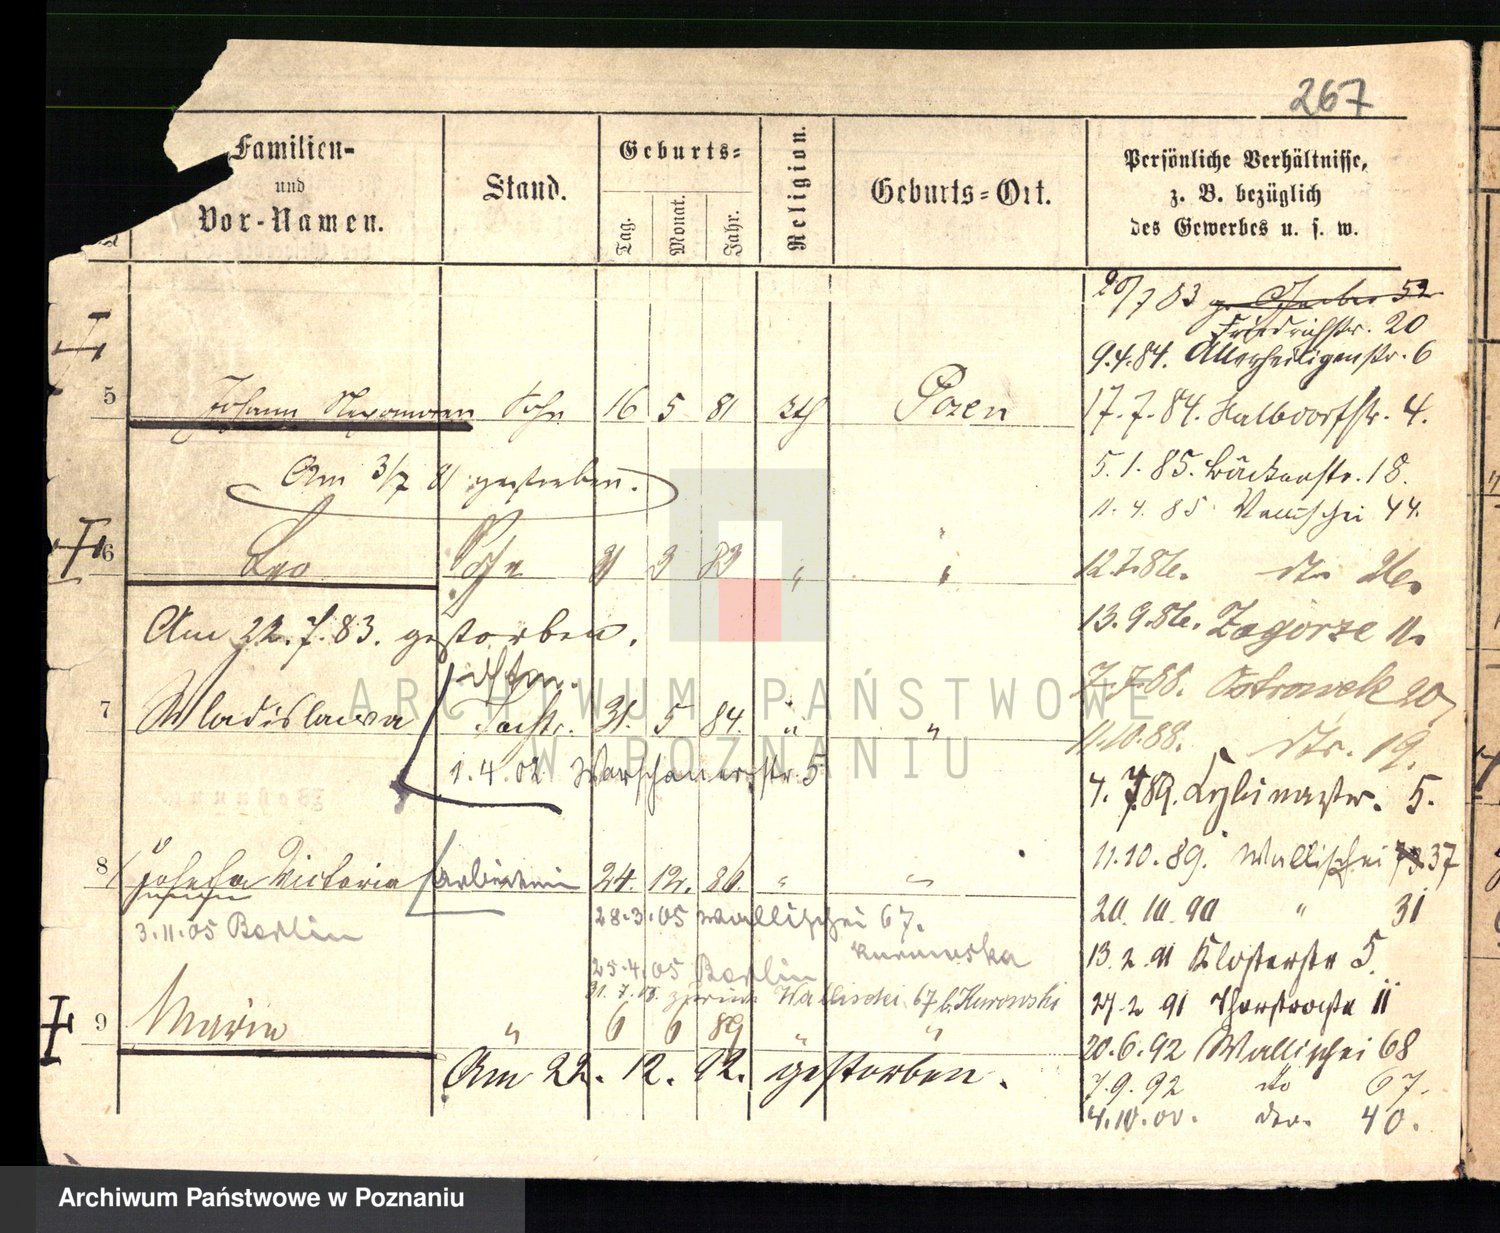 267
Familien-
und
Vor-Namen.
Stand.
Geburts-
Tag.
Monat.
Jahr.
Religion.
Geburts-Ort.
Persönliche Verhältnisse,
z. B. bezüglich
des Gewerbes u. s. w.
20/7 83 52
Friedrichstr. 20
9.4.84. Allerheiligenstr. 6
5 Johann Sohn 16 5 81 kth Posen
17.7.84. Halbdorfstr. 4.
Am 3/7 81 gestorben.
5.1.85. Bäckerstr. 18.
11.4.85 44.
6 Leo Sohn 83 "
12.7.86. dto
Am 22.7.83. gestorben.
13.9.86. Zagorze 11.
7.7.88. Ostrowek 20
7 Wladislawa Tocht. 31. 5 84. " "
11.10.88. dto. 19.
1.4.02 Warschauerstr. 5
4.7.89. Cybinastr. 5.
8 Josefa Victoria Arbeiterin 24. 12. 86. " "
11.10.89. Wallischei 37
3.11.05 Berlin
28.3.05 Wallischei 67.
Kurowska
20.10.90 " 31
25.4.05 Berlin
13.2.91 Klosterstr 5.
Wallischei 67 b. Kurowski
27.2.91 11
9 Maria " 6 6 89 " "
20.6.92 Wallischei 68
Am 22. 12. 92. gestorben.
7.9.92 dto 67.
4.10.00. dto. 40.
ARCHIWUM PAŃSTWOWE
W POZNANIU
Archiwum Państwowe w Poznaniu